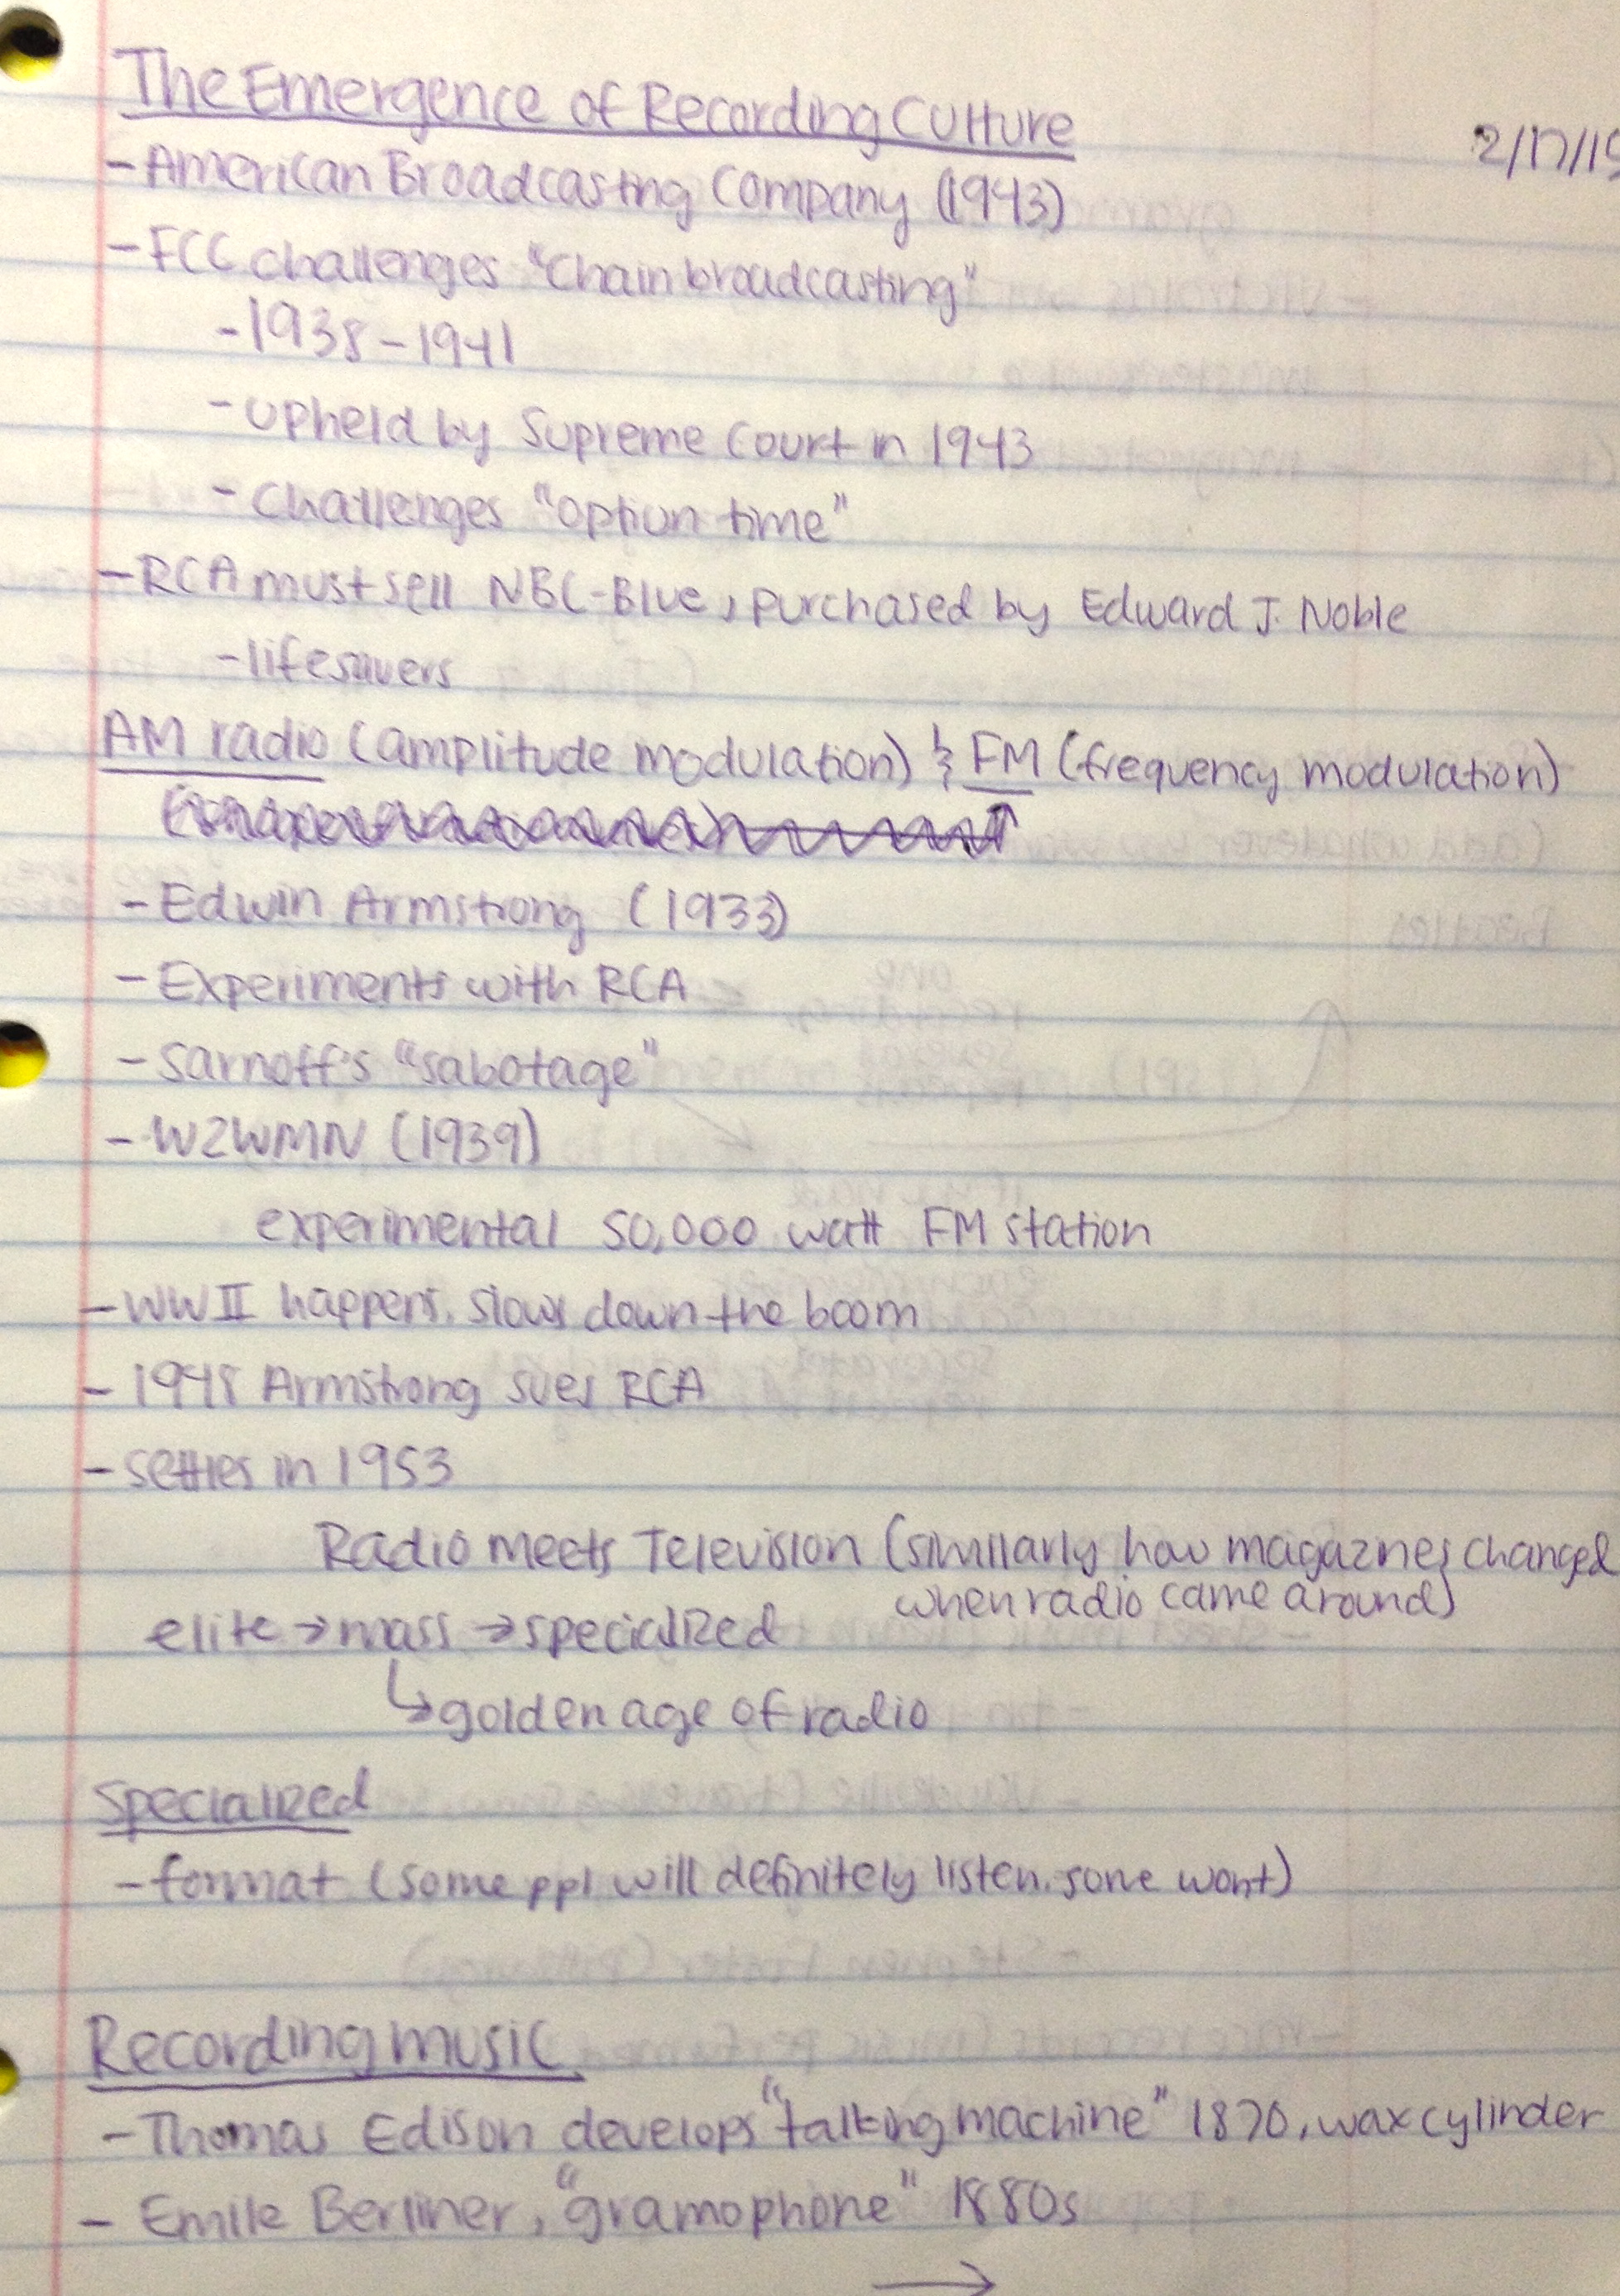 The Emergence of Recording Culture
2/17/15
- American Broadcasting Company (1943)
- FCC challenges "Chain broadcasting"
- 1938-1941
- upheld by Supreme Court in 1943
- Challenges "option time"
- RCA must sell NBC-Blue, purchased by Edward J. Noble
- lifesavers
AM radio (amplitude modulation) & FM (frequency modulation)
- Edwin Armstrong (1933)
- Experiments with RCA
- Sarnoff's "sabotage"
- W2WMN (1939)
experimental 50,000 watt FM station
- WW II happens, slows down the boom
- 1948 Armstrong sues RCA
- settles in 1953
Radio meets Television (similarly how magazines changed
when radio came around)
elite → mass → specialized
↳ golden age of radio
Specialized
- format (some ppl will definitely listen, some wont)
Recording music
- Thomas Edison develops "talking machine" 1870, wax cylinder
- Emile Berliner, "gramophone" 1880s
→